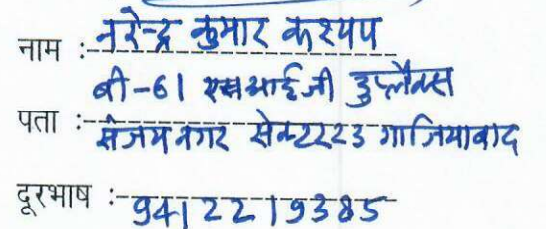 नाम : नरेन्द्र कुमार कश्यप
बी-61 एसआईजी डुप्लैक्स
पता : संजयनगर सेक्टर 23 गाजियाबाद
दूरभाष :- 9412219385